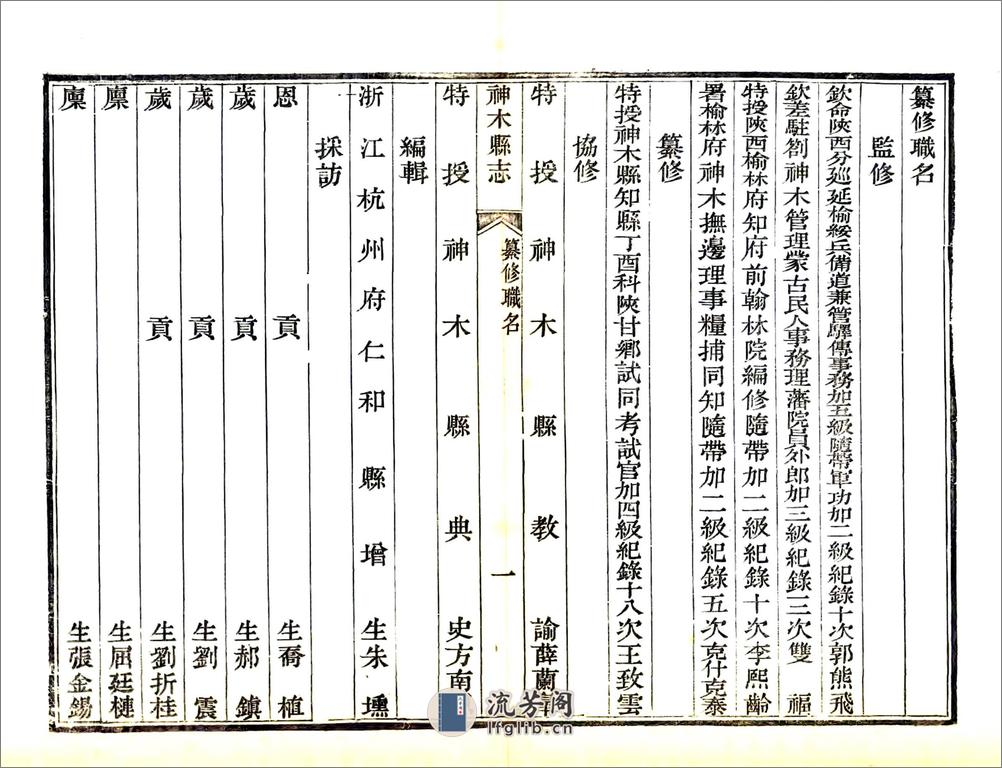 纂修職名
監修
欽命陝西分巡延榆綏兵備道兼管驛傳事務加五級隨帶軍功加二級紀錄十次郭熊飛
欽差駐劄神木管理蒙古民人事務理藩院員外郎加三級紀錄三次雙福
特授陝西榆林府知府前翰林院編修隨帶加二級紀錄十次李熙齡
署榆林府神木撫邊理事糧捕同知隨帶加二級紀錄五次克什克泰
纂修
特授神木縣知縣丁酉科陝甘鄉試同考試官加四級紀錄十八次王致雲
協修
特授神木縣教諭薛蘭
神木縣志
纂修職名
一
特授神木縣典史方南
編輯
浙江杭州府仁和縣增生朱壎
採訪
恩貢生喬植
歲貢生郝鎮
歲貢生劉震
歲貢生劉折桂
廩生屈廷槤
廩生張金錫
流芳閣
lfglib.cn